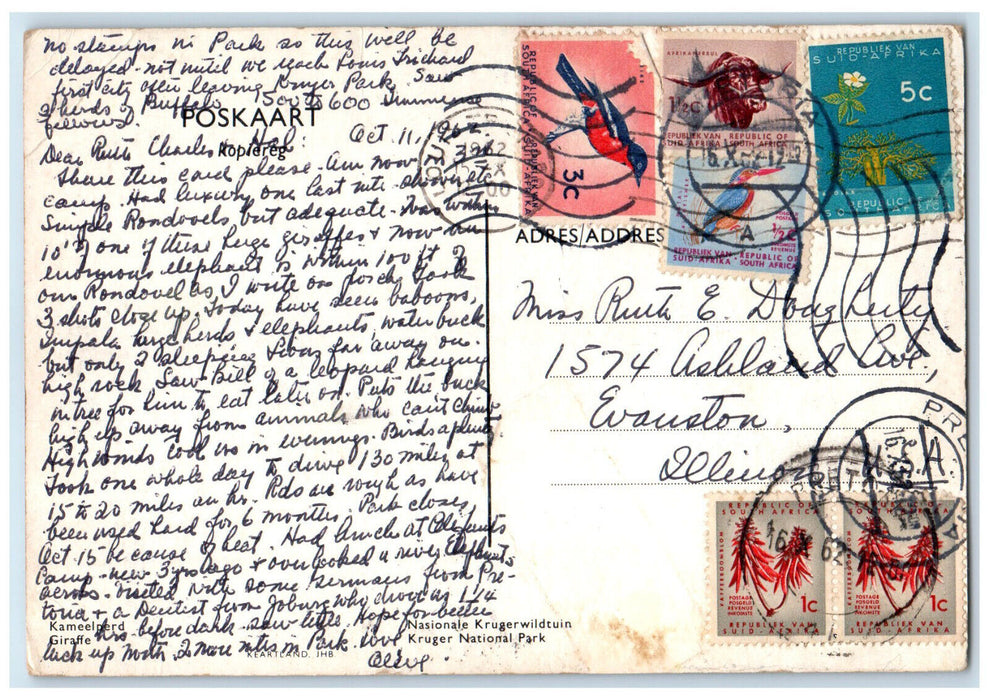 no stamps in Park so this will be
delayed - not until we reach Louis Trichard
first city after leaving Kruger Park. Saw
2 herds of Buffalo 1 south 600 immense
fellows.
POSKAART
Kopiereg
Oct. 11, 1962
Dear Ruth Charles + Hal:
Share this card please. Am now in 3rd
camp. Had luxury one last nite - shower etc
Simple Rondovels but adequate. Was within
10' of one of these huge giraffes + now an
enormous elephant is within 100 ft of
our Rondovel as I write on porch. Took
3 shots close up. Today have seen baboons,
Impala large herds + elephants, waterbuck
but only 2 sleeping lions far away on
high rock. Saw kill of a leopard hanging
in tree for him to eat later on. Puts the buck
high up away from animals who can't climb
High winds cool us in evenings. Birds aplenty.
Took one whole day to drive 130 miles at
15 to 20 miles an hr. Rds are rough as have
been used hard for 6 months. Park closes
Oct. 15 because of heat. Had lunch at Olifants
Camp - new 3 yrs ago + overlooked a river. Elephants
across. Visited with some Germans from Pre-
toria + a Dentist from Joburg who drove us 1 1/4
hrs. before dark. saw little. Hope for better
luck up North. 2 more nites in Park. Love
Olive.
Kameelperd
Giraffe
Nasionale Krugerwildtuin
Kruger National Park
KEARTLAND, JHB
ADRES/ADDRES
Miss Ruth E. Dougherty
1574 Ashland Ave.,
Evanston,
Illinois U.S.A.
REPUBLIC OF SOUTH AFRICA
REPUBLIEK VAN SUID-AFRIKA
3c
AFRIKANERBUL
1½c
REPUBLIEK VAN SUID-AFRIKA
REPUBLIC OF SOUTH AFRICA
½c
POSTAGE REVENUE
REPUBLIEK VAN SUID-AFRIKA
REPUBLIC OF SOUTH AFRICA
REPUBLIEK VAN
SUID-AFRIKA
5c
REPUBLIC OF
SOUTH AFRICA
PRETORIA
16 X 62
REPUBLIC OF
SOUTH AFRICA
KAFFERBOOMBLOM
POSTAGE
POSGELD
REVENUE
INKOMSTE
1c
REPUBLIEK VAN
SUID-AFRIKA
REPUBLIC OF
SOUTH AFRICA
KAFFERBOOMBLOM
POSTAGE
POSGELD
REVENUE
INKOMSTE
1c
REPUBLIEK VAN
SUID-AFRIKA